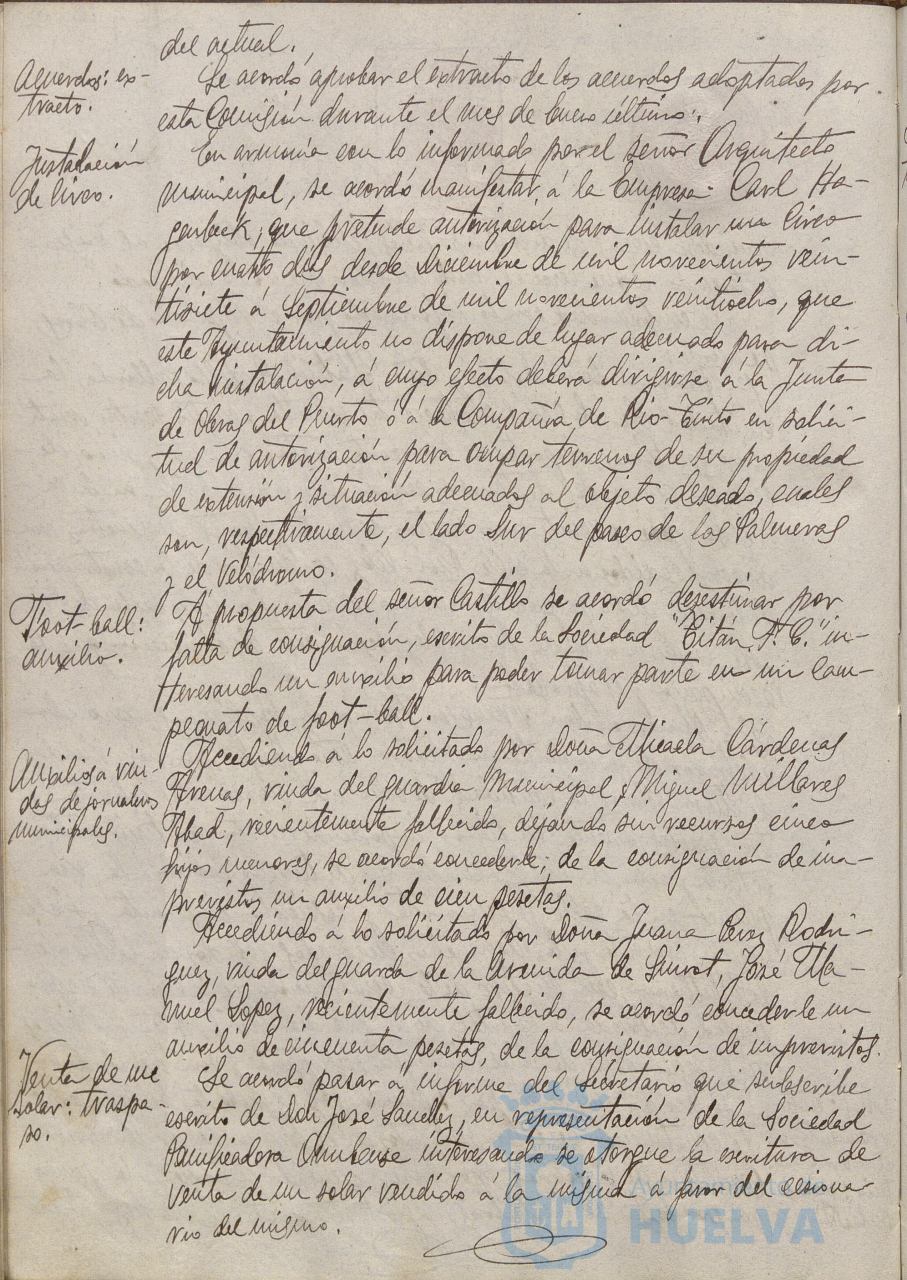 del actual.
Acuerdos: ex-
tracto.
Se acordó aprobar el extracto de los acuerdos adoptados por
esta Comisión durante el mes de Enero último.
Instalación
de Circo.
En armonía con lo informado por el señor Arquitecto
municipal, se acordó manifestar á la Empresa Carl Ha-
genbeck, que pretende autorización para instalar un Circo
por cuatro dias desde Diciembre de mil novecientos vein-
tisiete á Septiembre de mil novecientos veintiocho, que
este Ayuntamiento no dispone de lugar adecuado para di-
cha instalación, á cuyo efecto deberá dirigirse á la Junta
de Obras del Puerto ó á la Compañía de Rio-Tinto en solici-
tud de autorización para ocupar terrenos de su propiedad
de extensión y situación adecuados al objeto deseado, cuales
son, respectivamente, el lado Sur del paseo de las Palmeras
y el Velódromo.
Foot-ball:
auxilio.
A propuesta del señor Castillo se acordó desestimar por
falta de consignación, escrito de la Sociedad "Titán F. C." in-
teresando un auxilio para poder tomar parte en un Cam-
peonato de foot-ball.
Auxilios á viu-
das de jornaleros
municipales.
Accediendo á lo solicitado por Doña Micaela Cárdenas
Arenas, viuda del guardia municipal, Miguel Millares
Abad, recientemente fallecido, dejando sin recursos cinco
hijos menores, se acordó concederle, de la consignación de im-
previstos un auxilio de cien pesetas.
Accediendo á lo solicitado por Doña Juana Perez Rodri-
guez, viuda del guarda de la Avenida de Siurot, José Ma-
nuel Lopez, recientemente fallecido, se acordó concederle un
auxilio de cincuenta pesetas, de la consignación de imprevistos.
Venta de un
solar: traspa-
so.
Se acordó pasar á informe del Secretario que subscribe
escrito de Don José Sanchez, en representación de la Sociedad
Panificadora Onubense interesando se otorgue la escritura de
venta de un solar vendido á la misma a favor del cesiona-
rio del mismo.
Ayuntamiento de
HUELVA